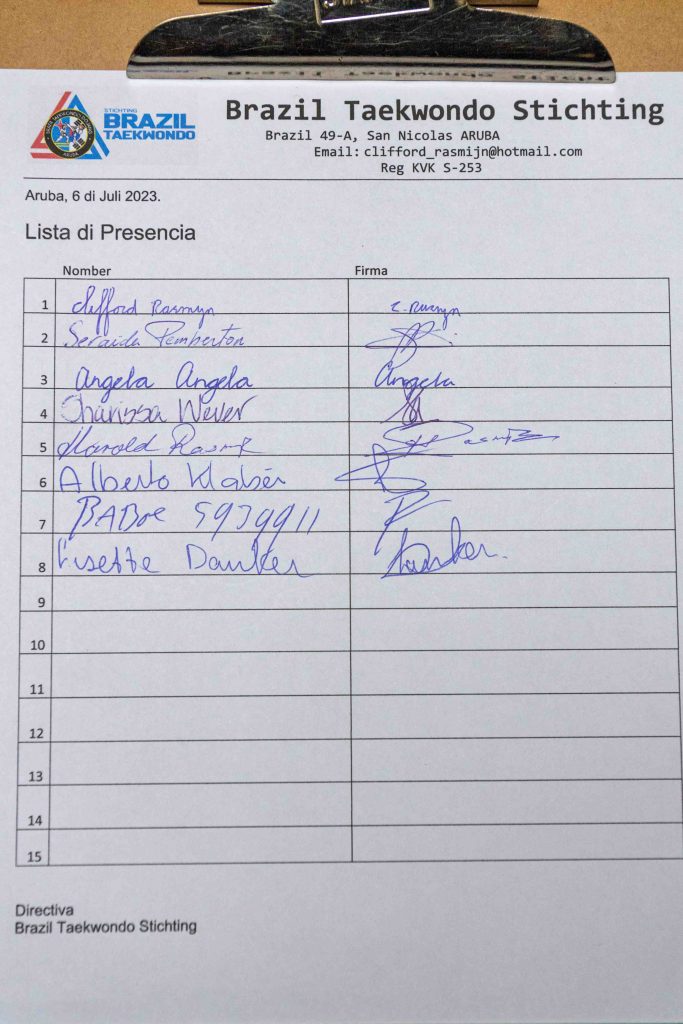 STICHTING
BRAZIL
TAEKWONDO
Brazil Taekwondo Stichting
Brazil 49-A, San Nicolas ARUBA
Email: clifford_rasmijn@hotmail.com
Reg KVK S-253
Aruba, 6 di Juli 2023.
Lista di Presencia
Nomber Firma
1 Clifford Rasmijn
2 Seraida Pemberton
3 Angela Angela Angela
4 Charissa Wever
5 Harold
6 Alberto
7 5939911
8 Lisette Danker Danker.
9
10
11
12
13
14
15
Directiva
Brazil Taekwondo Stichting